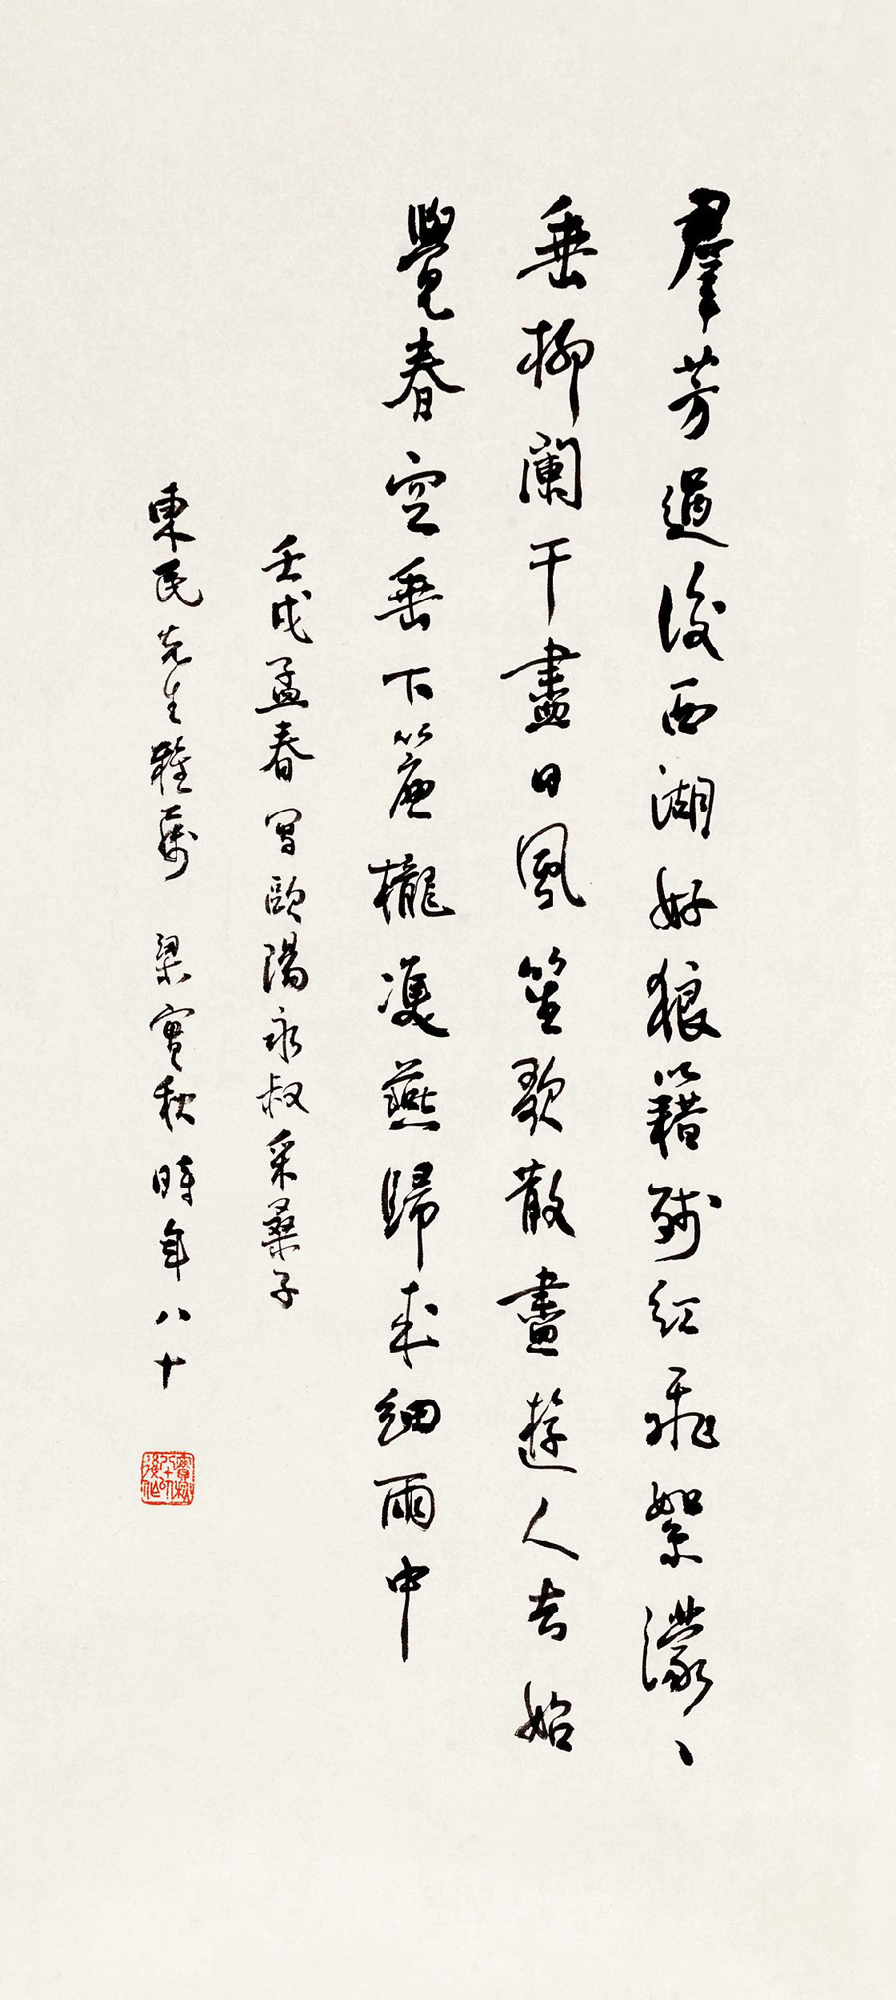 羣芳過後西湖好狼籍殘紅飛絮濛〻
垂柳闌干盡日風笙歌散盡遊人去始
覺春空垂下簾櫳雙燕歸來細雨中
壬戌孟春寫歐陽永叔采桑子
東民先生雅屬 梁實秋時年八十